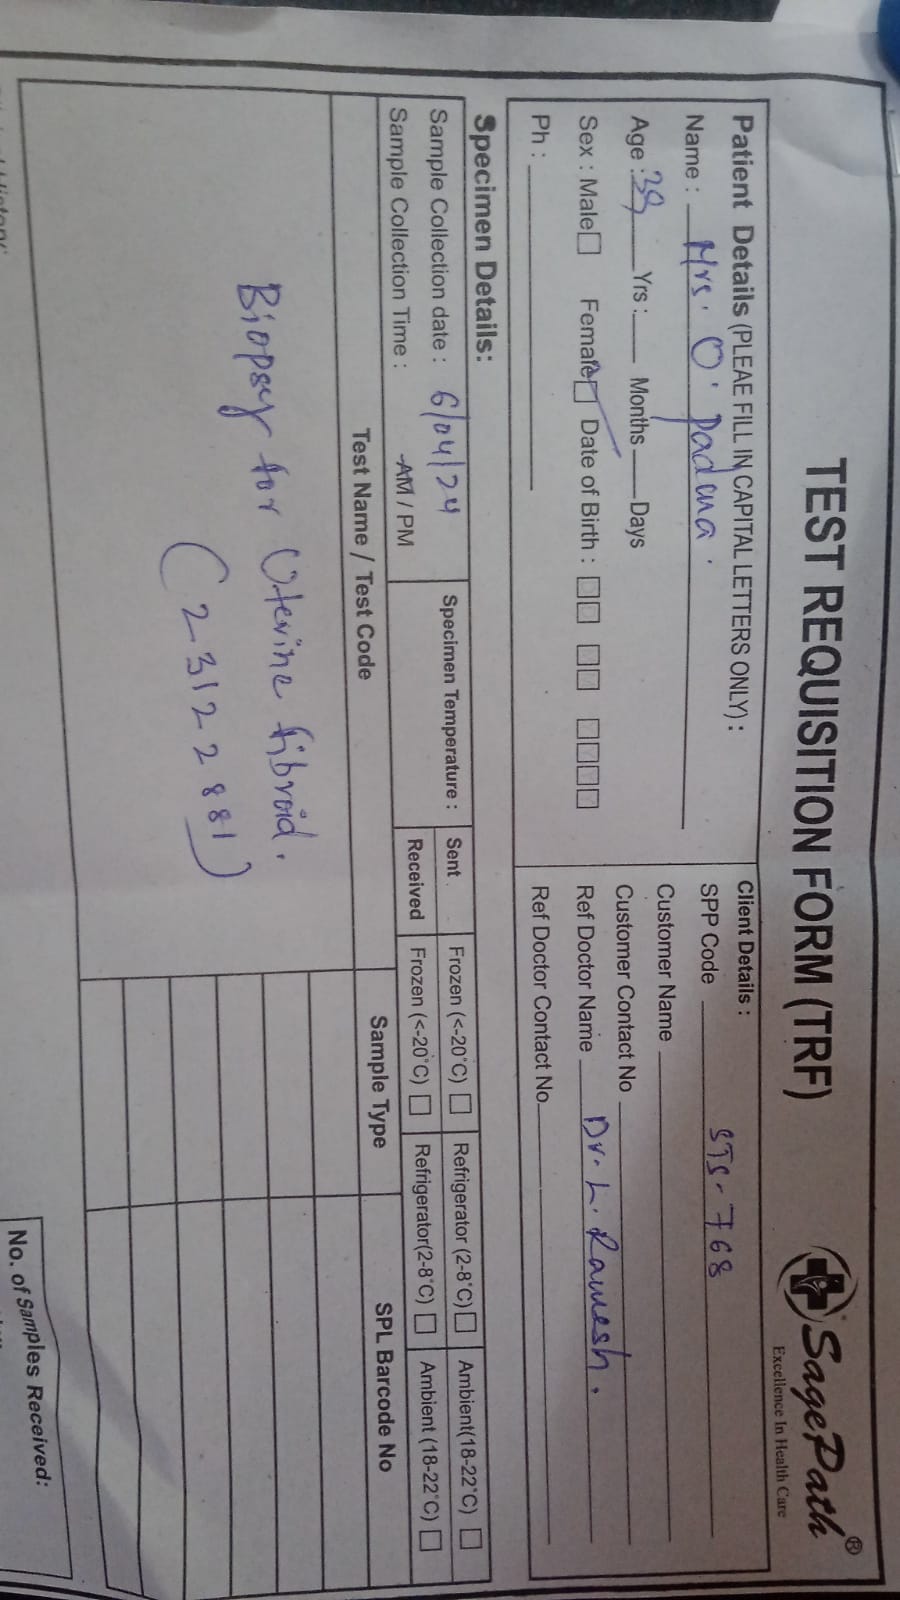 TEST REQUISITION FORM (TRF)
SagePath®
Excellence In Health Care
Patient Details (PLEAE FILL IN CAPITAL LETTERS ONLY) :
Name : Mrs. O. Padma.
Age : 39 Yrs : Months Days
Sex : Male Female Date of Birth :
Ph :
Client Details :
SPP Code STS-768
Customer Name
Customer Contact No
Ref Doctor Name Dr. L. Ramesh.
Ref Doctor Contact No
Specimen Details:
Sample Collection date : 6/04/24
Sample Collection Time : AM / PM
Specimen Temperature :
Sent Frozen (<-20°C) Refrigerator (2-8°C) Ambient(18-22°C)
Received Frozen (<-20°C) Refrigerator(2-8°C) Ambient (18-22°C)
Test Name / Test Code Sample Type SPL Barcode No
Biopsy for Uterine fibroid.
(23122881)
No. of Samples Received: